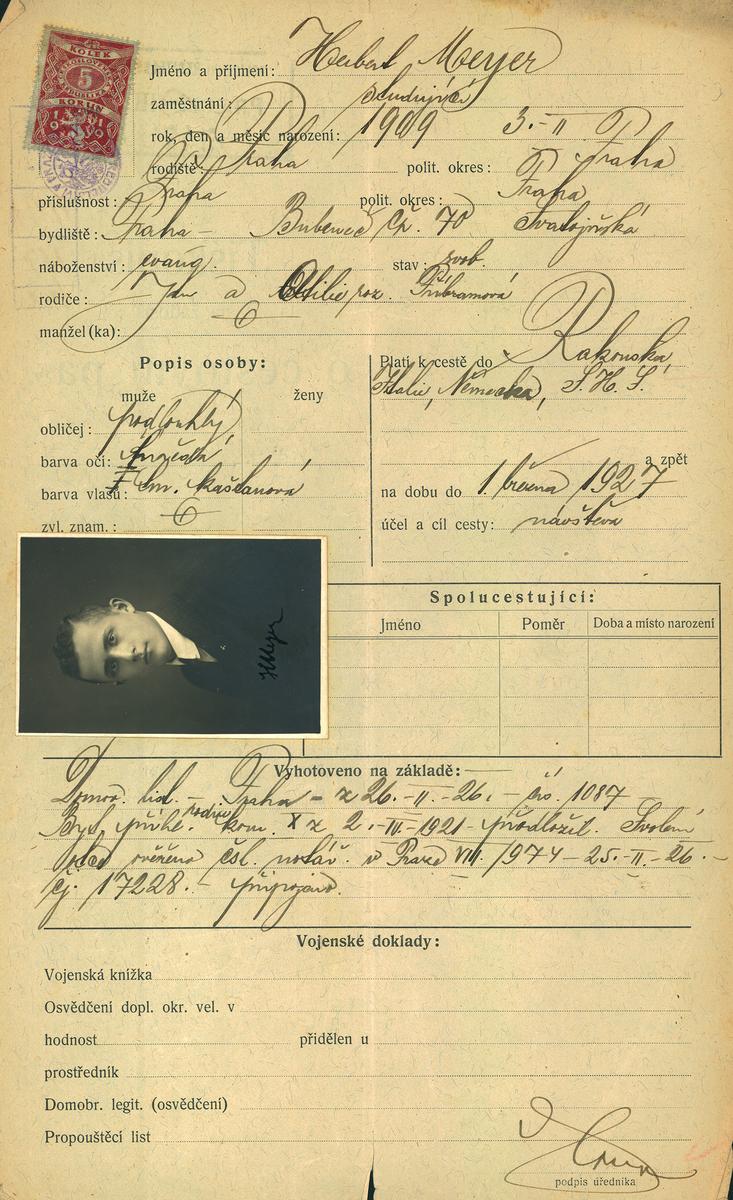 KOLEK
5
KORUN
1919
Jméno a příjmení: Herbert Meyer
zaměstnání: studující
rok, den a měsíc narození: 1909 3.-II
rodiště: Praha polit. okres: Praha
příslušnost: Praha polit. okres: Praha
bydliště: Praha - Bubeneč čp. 70 Svatojiřská
náboženství: evang. stav: svob.
rodiče: Jan a Otilie roz. Příbramová
manžel(ka):
Popis osoby:
muže ženy
obličej: podlouhlý
barva očí: hnědá
barva vlasů: tm. kaštanová
zvl. znam.:
Platí k cestě do Rakouska,
Italie, Německa, S. H. S.
a zpět
na dobu do 1. března 1927
účel a cíl cesty: návštěva
HMeyer
Spolucestující:
Jméno Poměr Doba a místo narození
Vyhotoveno na základě:
Domov. list - Praha - z 26.-II.-26. - čís. 1087
Byt. přihl. rodičů kom. X z 2.-IV-1921 - předložil. Svolení
otce ověřeno čsl. notář. v Praze VIII. 1974 - 25.-II.-26.-
čj. 17228.- připojeno.
Vojenské doklady:
Vojenská knížka
Osvědčení dopl. okr. vel. v
hodnost přidělen u
prostředník
Domobr. legit. (osvědčení)
Propouštěcí list
podpis úředníka